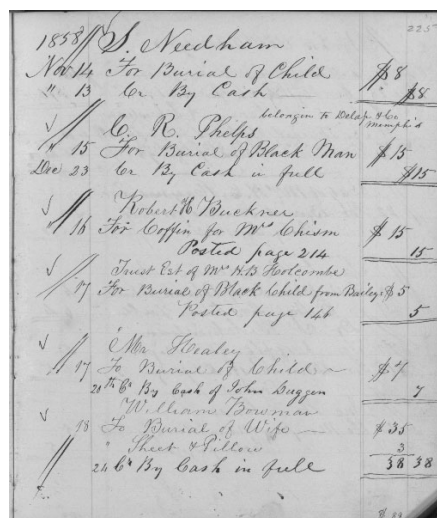 225
1858 S. Needham
Nov 14 For Burial of Child $8
" 13 Cr By Cash $8
belongin to Delap & Co Memphis
C. R. Phelps
" 15 For Burial of Black Man $15
Dec 23 Cr By Cash in full $15
Robert H Buckner
" 16 For Coffin for Mrs Chism $15
Posted page 214 15
Trust Est of Mrs H.B Holcombe
" 17 For Burial of Black Child from Baileys $5
Posted page 146 5
Mr Healey
" 17 To Burial of Child $7
20th Cr By Cash of John Duggen 7
William Bowman
18 To Burial of Wife $35
" Sheet & Pillow 3
24 Cr By Cash in full 38 38